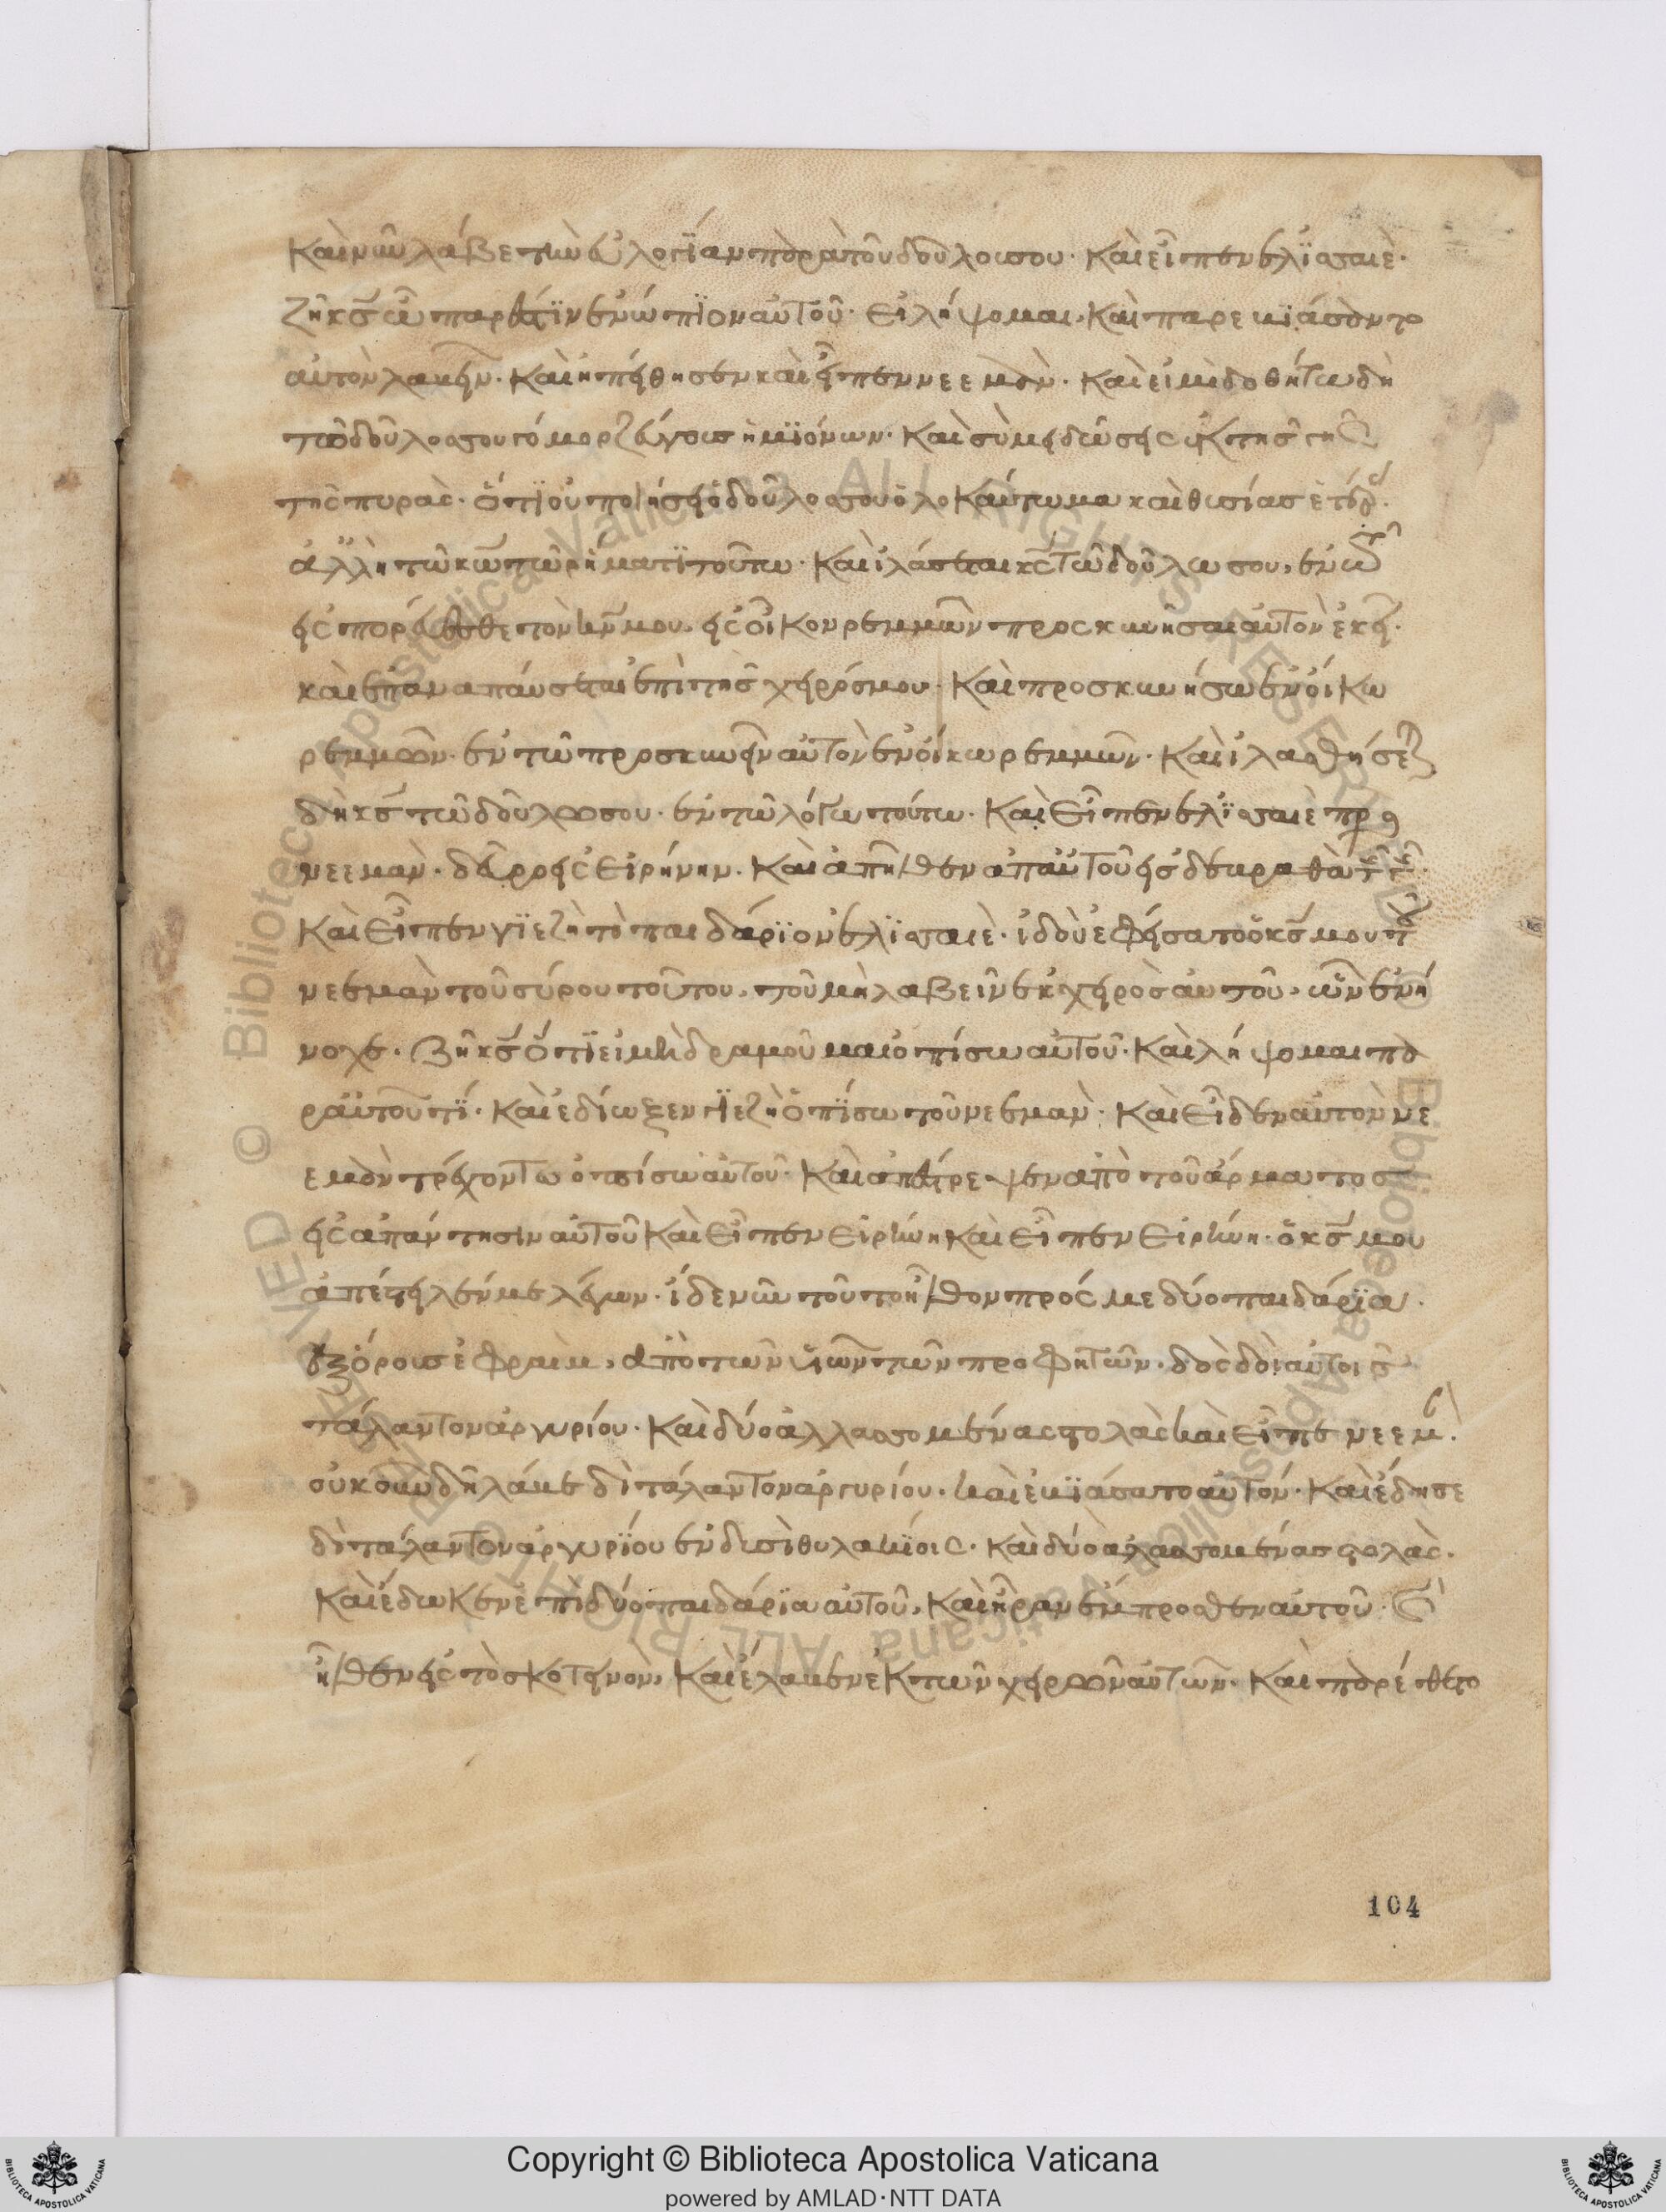 καὶ νῦν λάβε τὴν εὐλογΐαν παρὰ τοῦ δούλου σου· καὶ εἶπεν ἐλΐσαιὲ·
ζῆ κς ὧ παρέστϊν ἐνώπϊον αὐτοῦ· εἰ λήψομαι· καὶ παρεβϊάσαντο
αὐτὸν λαβεῖν· καὶ ἠπείθησεν καὶ εἶπεν νεεμὰν· καὶ εἰ μὴ δοθήτω δὴ
τῶ δούλω σου γόμορ ζεύγους ἡμϊόνων· καὶ σύ μοι δώσεις ἐκ τῆς γῆς
τῆς πυρᾶς· ὅτϊ οὐ ποιήσει ὁ δοῦλος σου ὁλοκαύτωμα καὶ θυσίασ ἑτέρ
ἀλλ ἢ τῶ κω τῶ ρήματϊ τούτω· καὶ ἱλάσεται κς τῶ δούλω σου, ἐν τῶ
εἰσπορεύεσθε τὸν κν μου, εἰς οἶκον ρεμμὼν προσκυνῆσαι αὐτὸν ἐκεῖ·
καὶ ἐπαναπαύσεται ἐπὶ τῆς χειρός μου· καὶ προσκυνήσω ἐν οἴκω
ρεμμὼν· ἐν τῶ προσκυνεῖν αὐτὸν ἐν οἴκω ρεμμών· καὶ ἱλασθήσεται
δὴ κς τῶ δούλω σου· ἐν τῶ λόγω τούτω· καὶ εἶπεν ἐλϊσαιὲ πρὸς
νεεμαν· δεῦρο εἰς εἰρήνην· καὶ ἀπῆλθεν ἀπ αὐτοῦ εἰς δεβραθὰ τῆς γῆς·
καὶ εἶπεν γϊεζῆ τὸ παιδάρϊον ἐλϊσαιὲ· ἰδοὺ ἐφείσατο ὁ κς μου τοῦ
νεεμὰν τοῦ σύρου τούτου, τοῦ μὴ λαβεῖν ἐκ χειρὸς αὐτοῦ, ὧν ἐνή
νοχε· ζῆ κς ὅτϊ εἰ μὴ δραμοῦμαι ὀπίσω αὐτοῦ· καὶ λήψομαι πα
ρ αὐτοῦ τΐ· καὶ ἐδίωξεν γϊεζῆ ὀπΐσω τοῦ νεεμὰν· καὶ εἶδεν αὐτὸν νε
εμὰν τρέχοντα ὀπίσω αὐτοῦ· καὶ ἐπέστρεψεν ἀπὸ τοῦ ἅρματος
εἰς ἀπάντησιν αὐτοῦ καὶ εἶπεν εἰρήνη καὶ εἶπεν εἰρήνη· ὁ κς μου
ἀπέστειλέν με λέγων· ἴδε νῦν τοῦτο ἦλθον πρός με δύο παιδάρϊα
ἐξ ὄρους ἐφραΐμ, ἀπὸ τῶν υἱῶν τῶν προφητῶν· δὸς δὴ αὐτοῖς
τάλαντον ἀργυρίου· καὶ δύο ἀλλασσομένας στολὰς καὶ εἶπε νεεμ·
οὐκοῦν δὴ λάβε διτάλαντον ἀργυρίου· καὶ ἐβϊάσατο αὐτόν· καὶ ἔδησε
διτάλαντον ἀργυρΐου ἐν δυσὶ θυλακίοις· καὶ δύο ἀλασσομένας στολὰς·
καὶ ἔδωκεν ἐπὶ δύο παιδάρϊα αὐτοῦ, καὶ ἦραν ἔμπροσθεν αὐτοῦ· καὶ
ἦλθεν εἰς τὸ σκοτεινὸν, καὶ ἔλαβεν ἐκ τῶν χειρῶν αὐτῶν· καὶ παρέθετο
104
Copyright © Biblioteca Apostolica Vaticana
powered by AMLAD·NTT DATA